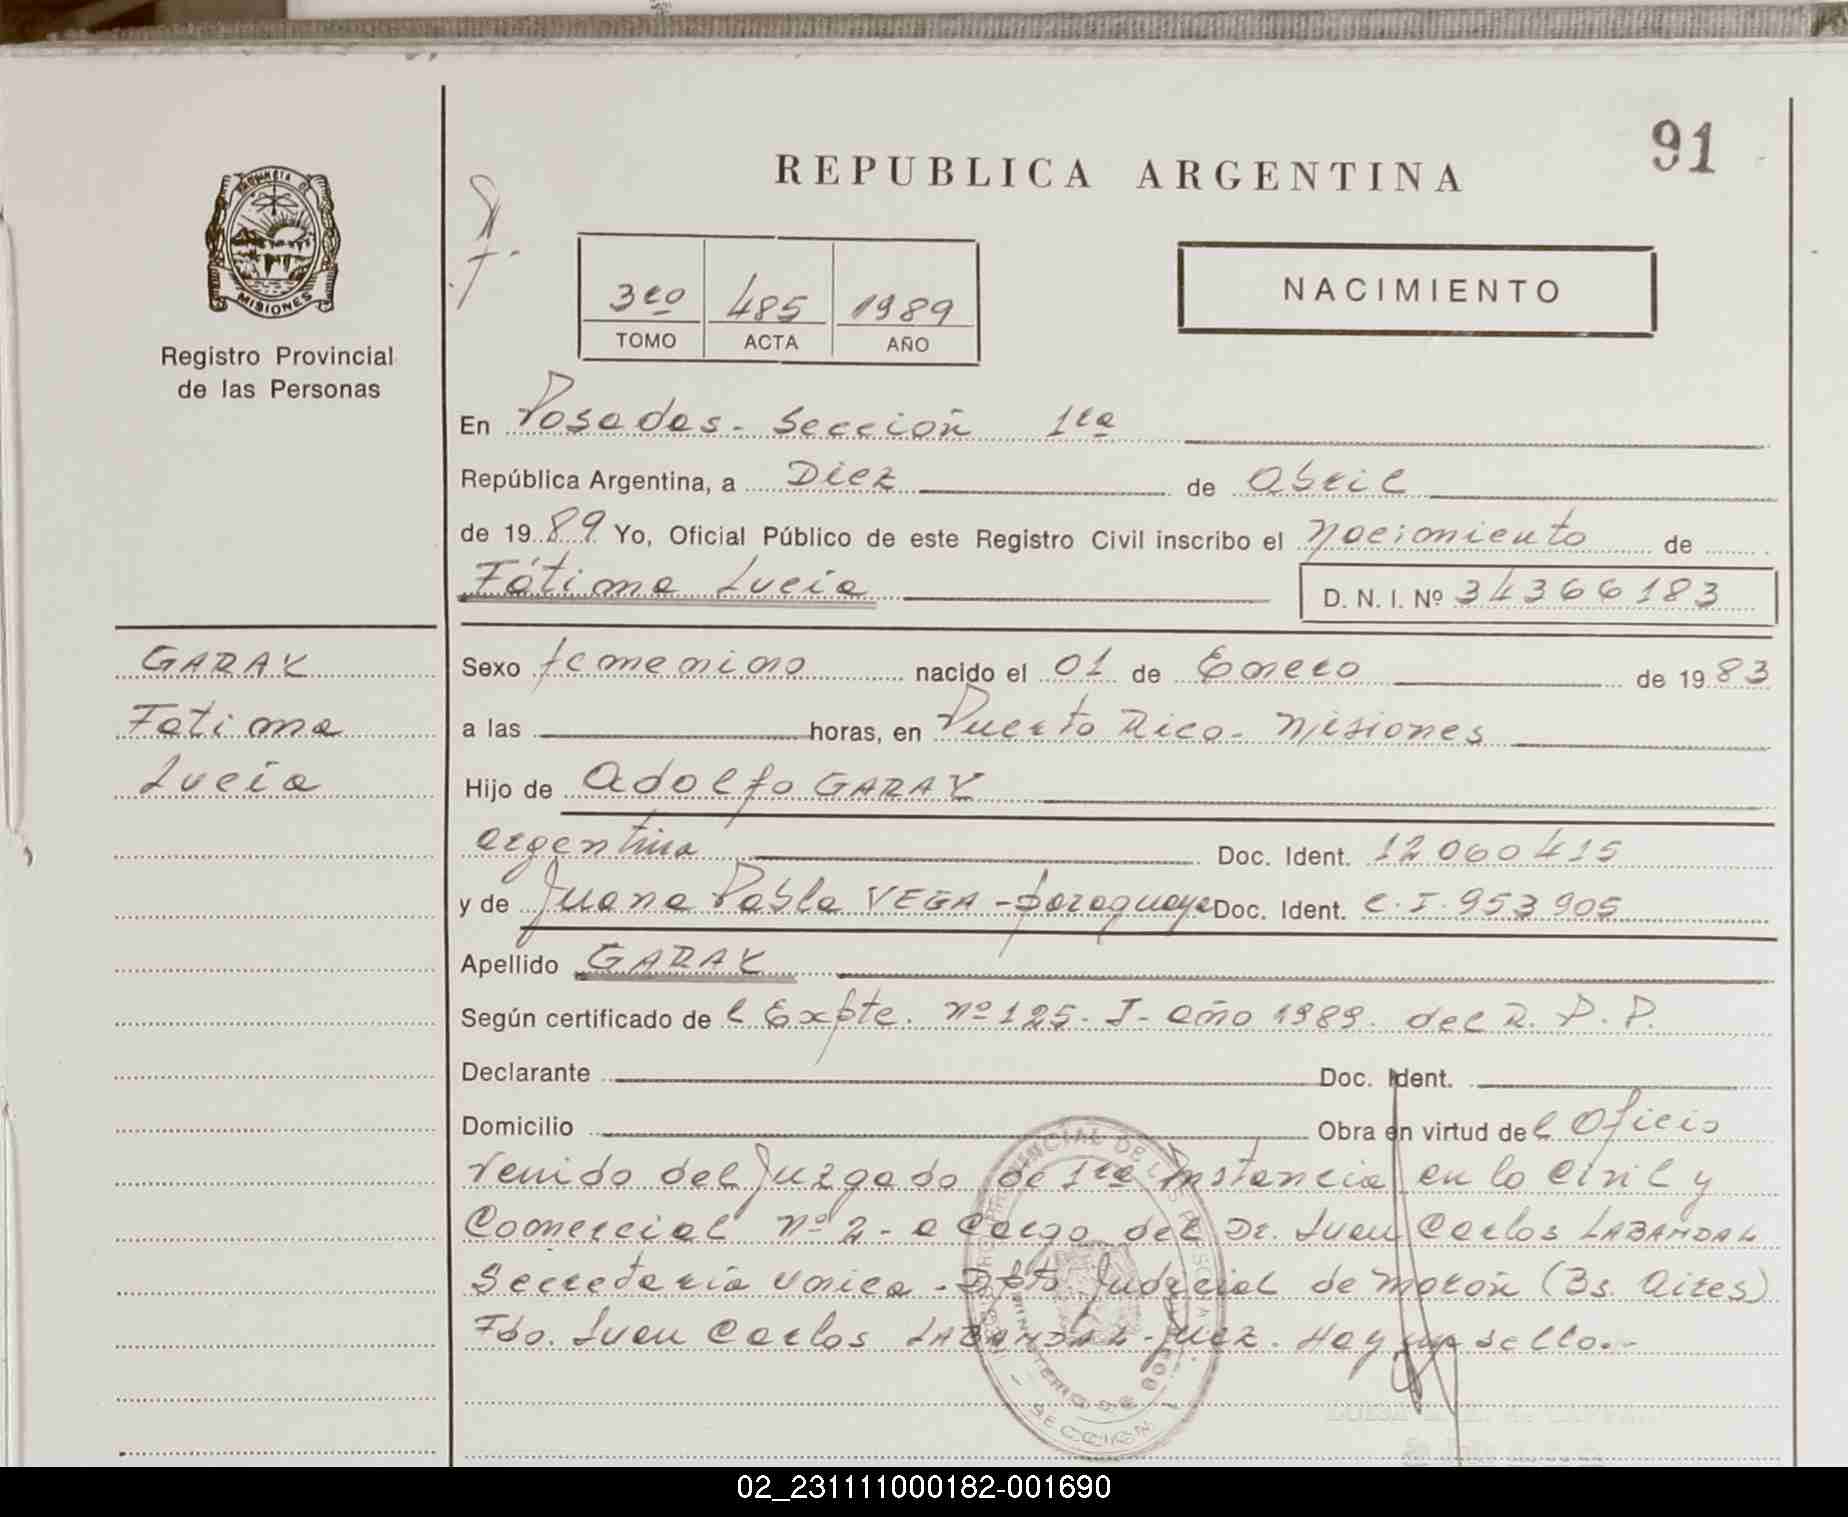 91
REPUBLICA ARGENTINA
PROVINCIA DE
MISIONES
Registro Provincial
de las Personas
3ro 485 1989
TOMO ACTA AÑO
NACIMIENTO
En Posadas - Sección 1ra
República Argentina, a Diez de Abril
de 19 89 Yo, Oficial Público de este Registro Civil inscribo el nacimiento de
Fátima Lucía D. N. I. Nº 34366183
GARAY
Fatima
Lucía
Sexo femenino nacido el 01 de Enero de 19 83
a las horas, en Puerto Rico - Misiones
Hijo de Adolfo GARAY
argentina Doc. Ident. 12060415
y de Juana Pabla VEGA - paraguaya Doc. Ident. C.I. 953905
Apellido GARAY
Según certificado de l Expte. nº 125 - J - año 1989. del R. P. P.
Declarante Doc. Ident.
Domicilio Obra en virtud de l Oficio
venido del Juzgado de 1ra Instancia en lo Civil y
Comercial nº 2 - a cargo del Dr. Juan Carlos LABANDAL
Secretaría Unica - Dpto. Judicial de Morón (Bs. Aires)
Fdo. Juan Carlos LABANDAL - Juez. Hay un sello.-
SECCION 1
02_231111000182-001690